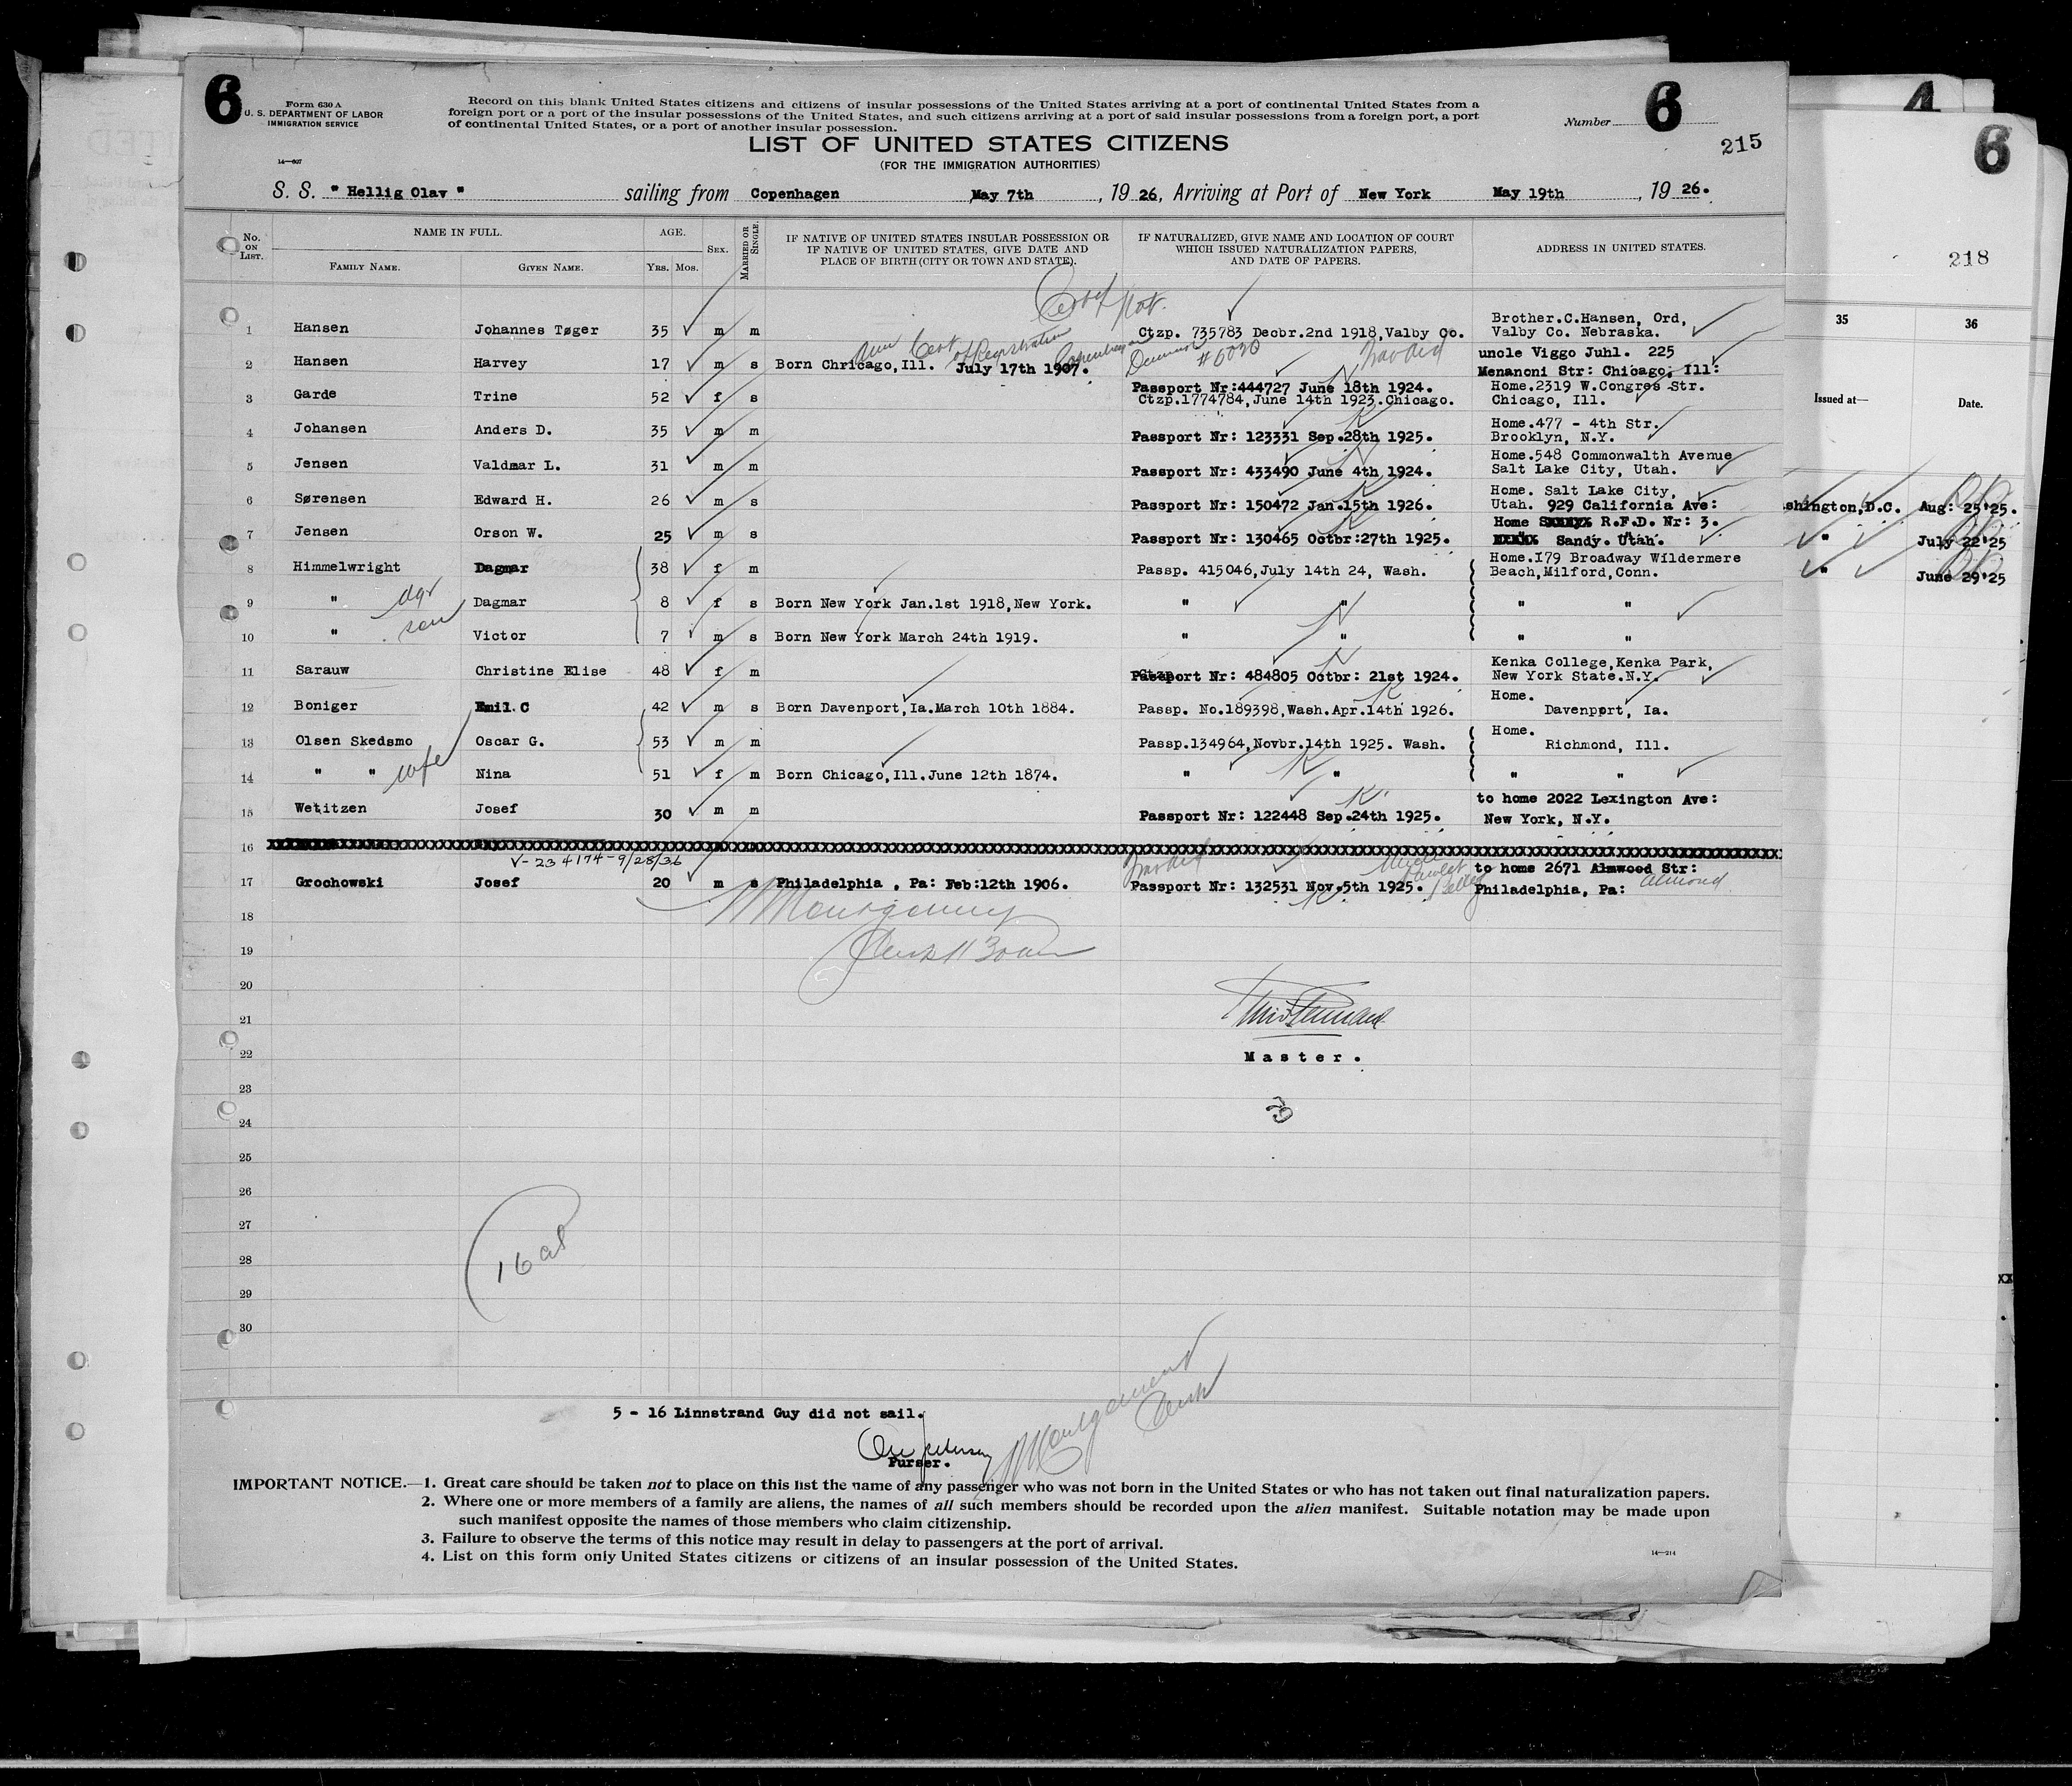 6
Form 630 A
U. S. DEPARTMENT OF LABOR
IMMIGRATION SERVICE
Record on this blank United States citizens and citizens of insular possessions of the United States arriving at a port of continental United States from a
foreign port or a port of the insular possessions of the United States, and such citizens arriving at a port of said insular possessions from a foreign port, a port
of continental United States, or a port of another insular possession.
Number 6
215
LIST OF UNITED STATES CITIZENS
(FOR THE IMMIGRATION AUTHORITIES)
14—507
S. S. " Hellig Olav " sailing from Copenhagen May 7th , 19 26, Arriving at Port of New York May 19th , 19 26.
No. ON LIST.
NAME IN FULL.
FAMILY NAME.
GIVEN NAME.
AGE.
YRS. MOS.
SEX.
MARRIED OR SINGLE.
IF NATIVE OF UNITED STATES INSULAR POSSESSION OR
IF NATIVE OF UNITED STATES, GIVE DATE AND
PLACE OF BIRTH (CITY OR TOWN AND STATE).
IF NATURALIZED, GIVE NAME AND LOCATION OF COURT
WHICH ISSUED NATURALIZATION PAPERS,
AND DATE OF PAPERS.
ADDRESS IN UNITED STATES.
Cert Nat.
Brother.C.Hansen, Ord,
1 Hansen Johannes Tøger 35 m m Ctzp. 735783 Decbr.2nd 1918,Valby Co. Valby Co. Nebraska.
Cert of Registration Copenhagen Denmark
uncle Viggo Juhl. 225
2 Hansen Harvey 17 m s Born Chricago,Ill. July 17th 1907. Menanoni Str: Chicago, Ill:
Passport Nr:444727 June 18th 1924. Home.2319 W.Congres Str.
3 Garde Trine 52 f s Ctzp.1774784,June 14th 1923.Chicago. Chicago, Ill.
Home.477 - 4th Str.
4 Johansen Anders D. 35 m m Passport Nr: 123331 Sep.28th 1925. Brooklyn, N.Y.
Home.548 Commonwalth Avenue
5 Jensen Valdmar L. 31 m m Passport Nr: 433490 June 4th 1924. Salt Lake City, Utah.
Home. Salt Lake City,
6 Sørensen Edward H. 26 m s Passport Nr: 150472 Jan.15th 1926. Utah. 929 California Ave:
Home R.F.D. Nr: 3.
7 Jensen Orson W. 25 m s Passport Nr: 130465 Octbr:27th 1925. Sandy. Utah.
Home.I79 Broadway Wildermere
8 Himmelwright Dagmar 38 f m Passp. 415046,July 14th 24, Wash. Beach,Milford,Conn.
9 " dgr Dagmar 8 f s Born New York Jan.1st 1918,New York. " " " "
10 " son Victor 7 m s Born New York March 24th 1919. " " " "
Kenka College,Kenka Park,
11 Sarauw Christine Elise 48 f m Passport Nr: 484805 Octbr: 21st 1924. New York State.N.Y.
Home.
12 Boniger Emil C 42 m s Born Davenport,Ia.March 10th 1884. Passp. No.189398,Wash.Apr.14th 1926. Davenport, Ia.
Home.
13 Olsen Skedsmo Oscar G. 53 m m Passp.134964,Novbr.14th 1925. Wash. Richmond, Ill.
14 " " wife Nina 51 f m Born Chicago,Ill.June 12th 1874. " " " "
to home 2022 Lexington Ave:
15 Wetitzen Josef 30 m m Passport Nr: 122448 Sep.24th 1925. New York, N.Y.
16
V-234174-9/28/36
to home 2671 Almwood Str:
17 Grochowski Josef 20 m s Philadelphia , Pa: Feb:12th 1906. Passport Nr: 132531 Nov.5th 1925. Philadelphia, Pa: Almond
18 Montgomery
19
20
21
22 Master.
23
24
25
26
27
28
29
30
5 - 16 Linnstrand Guy did not sail.
Purser.
IMPORTANT NOTICE.—1. Great care should be taken not to place on this list the name of any passenger who was not born in the United States or who has not taken out final naturalization papers.
2. Where one or more members of a family are aliens, the names of all such members should be recorded upon the alien manifest. Suitable notation may be made upon
such manifest opposite the names of those members who claim citizenship.
3. Failure to observe the terms of this notice may result in delay to passengers at the port of arrival.
4. List on this form only United States citizens or citizens of an insular possession of the United States.
14—214
4
6
218
35 36
Issued at— Date.
shington,D.C. Aug: 25'25.
" July 22'25
" June 29'25